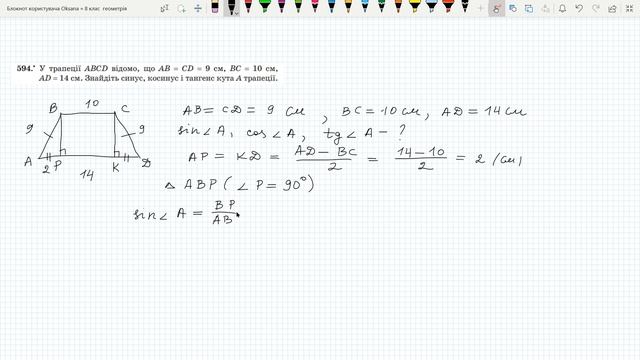 Блокнот користувача Oksana » 8 клас геометрія
594.• У трапеції ABCD відомо, що AB = CD = 9 см, BC = 10 см,
AD = 14 см. Знайдіть синус, косинус і тангенс кута A трапеції.
B 10 C
9 9
A 2 P K D
14
AB = CD = 9 см, BC = 10 см, AD = 14 см
sin∠A, cos∠A, tg∠A - ?
AP = KD = (AD - BC)/2 = (14 - 10)/2 = 2 (см)
△ ABP (∠P = 90°)
sin∠A = BP/AB